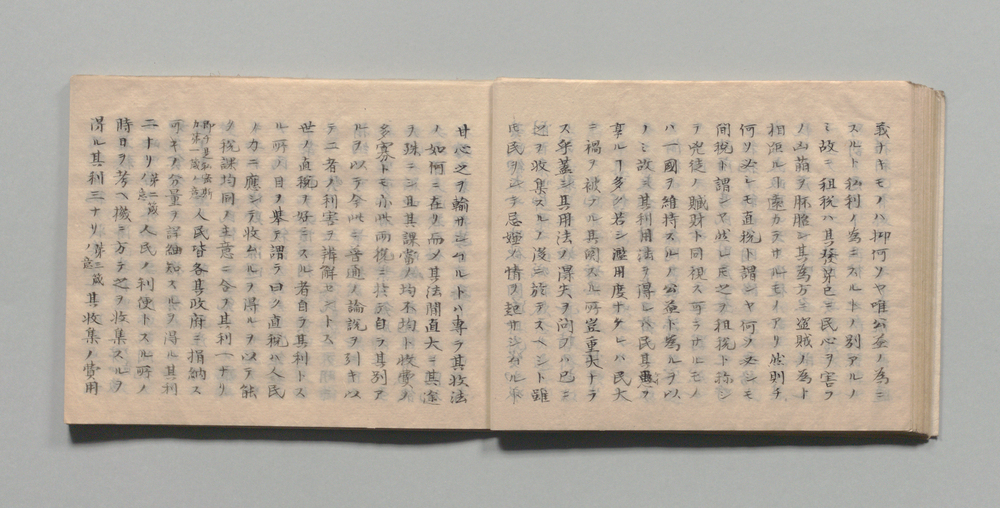 義ナキモノハ抑何ソヤ唯公益ノ為ニ
スルト私利ノ為ニスルトノ別アルノ
ミ故ニ租税ハ其発算已ニ民心ヲ害フ
ノ凶萠ヲ胚胎シ其為方盗賊ノ為ト
相距ル下遠カラサルモノイアリ然則チ
何ソ必シモ直税ト謂シヤ何ソ必シモ
間税ト謂シヤ然レ之ヲ租税ト称シ
テ兇徒ノ賊財ト同視ス可ラサルモノ
ハ一國ヲ維持スルノ公益ト為ルヲ以
ノミ故ニ其利用法ヲ得レハ民其恵ヲ
享ル多ク若シ濫用度ナケレハ民大
ニ禍ヲ被フル其関スル所豈重大ナラ
ス乎蓋シ其用法ノ得失ヲ問フハ已ニ
之ヲ收集スルノ後ニ於テスヘシト雖
民ヲシテ忌嫌ノ情ヲ起サシメサル
甘心之ヲ輸サシムルトハ専ラ其收法
ノ如何ニ在リ而〆其法間直大ニ其途
ヲ殊ニシ且其課當ノ均不均ト收費ノ
多寡トモ亦此両税ニ於テ自ラ其別ア
ルヲ以テ今此ニ普通ノ論説ヲ引キ以
テ二者ノ利害ヲ辨解セントス
世ノ直税ヲ好ミスル者自ラ其利トス
ル所ノ目ヲ挙テ謂ラ曰ク直税ハ人民
ノ力ニ應シテ收ムルヲ得ルヲ以テ能
ク税課均同ノ主意ニ合ヲ其利一ナリ
人民皆各其政府ニ捐納ス
可キノ分量ヲ詳細知スルヲ得ル其利
二ナリ 人民ノ利便トスル所ノ
時日ヲ考ヘ機ニ方テ之ヲ收集スルヲ
得ル其利三ナリ 其收集ノ費用